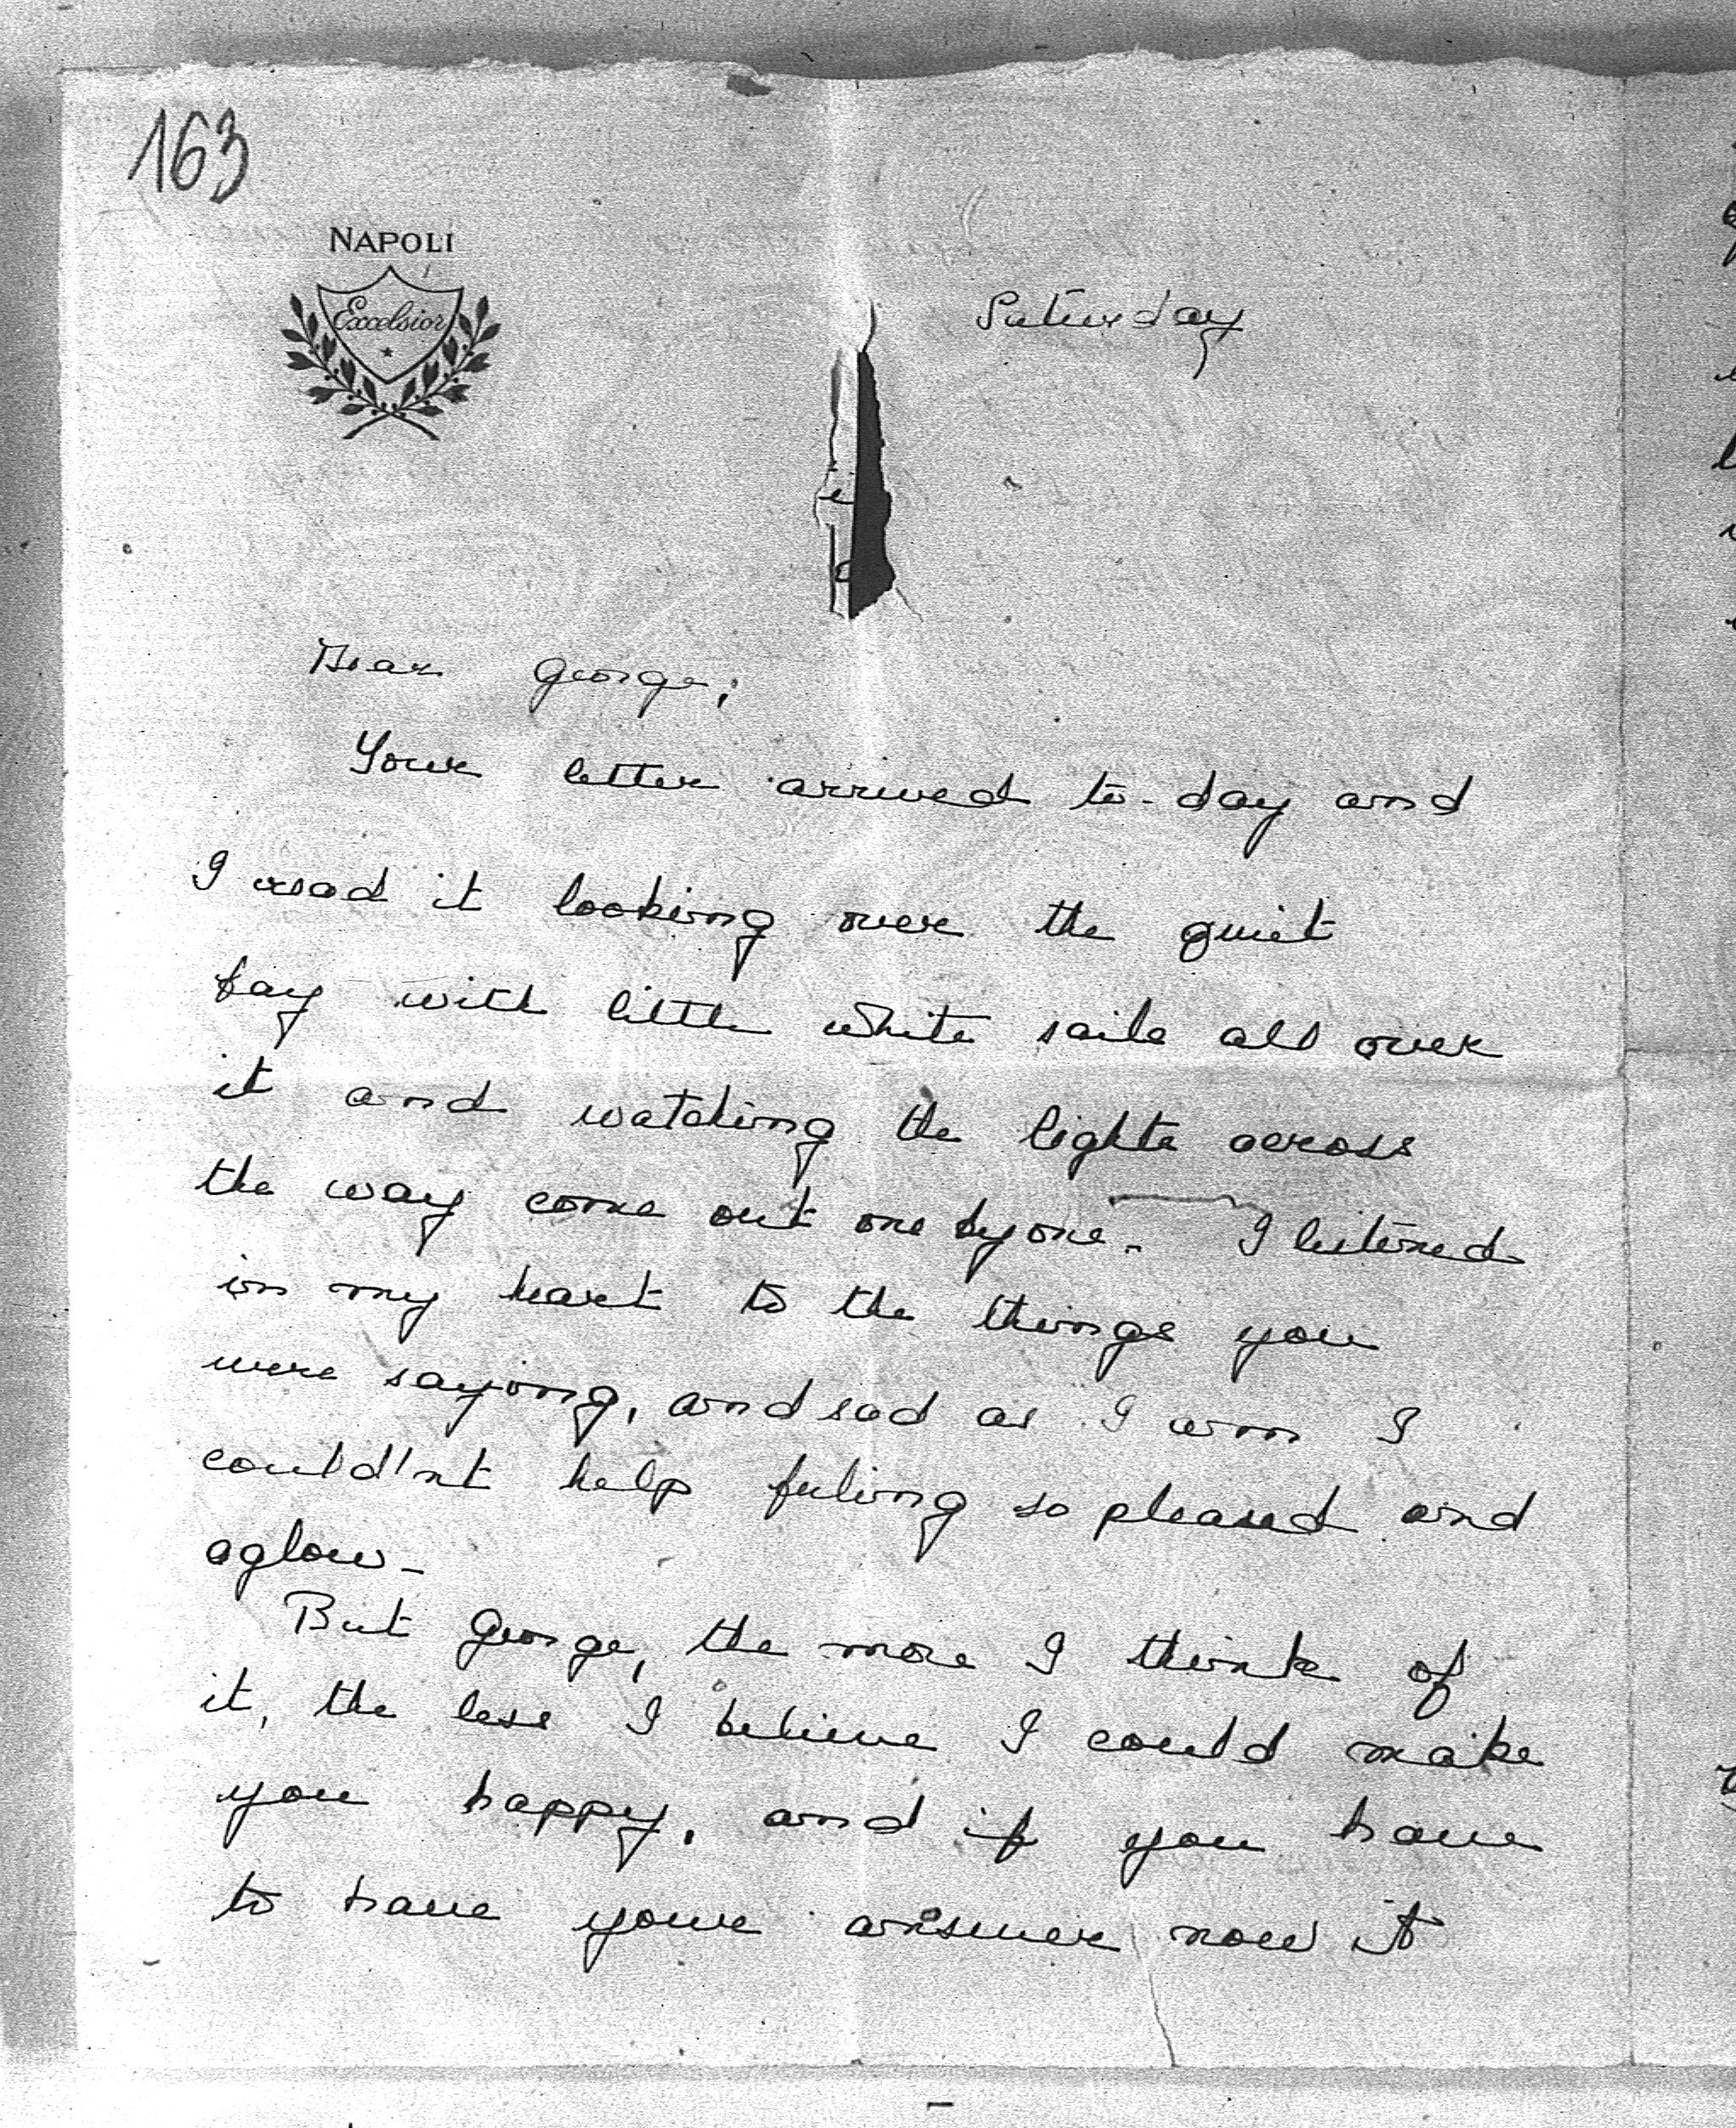 163
NAPOLI
Excelsior
Saturday
Dear George,
Your letter arrived to-day and
I read it looking over the quiet
bay with little white sails all over
it and watching the lights across
the way come out one by one. I listened
in my heart to the things you
were saying, and sad as I am I
could'nt help feeling so pleased and
aglow -
But George, the more I think of
it, the less I believe I could make
you happy, and if you have
to have your answer now it